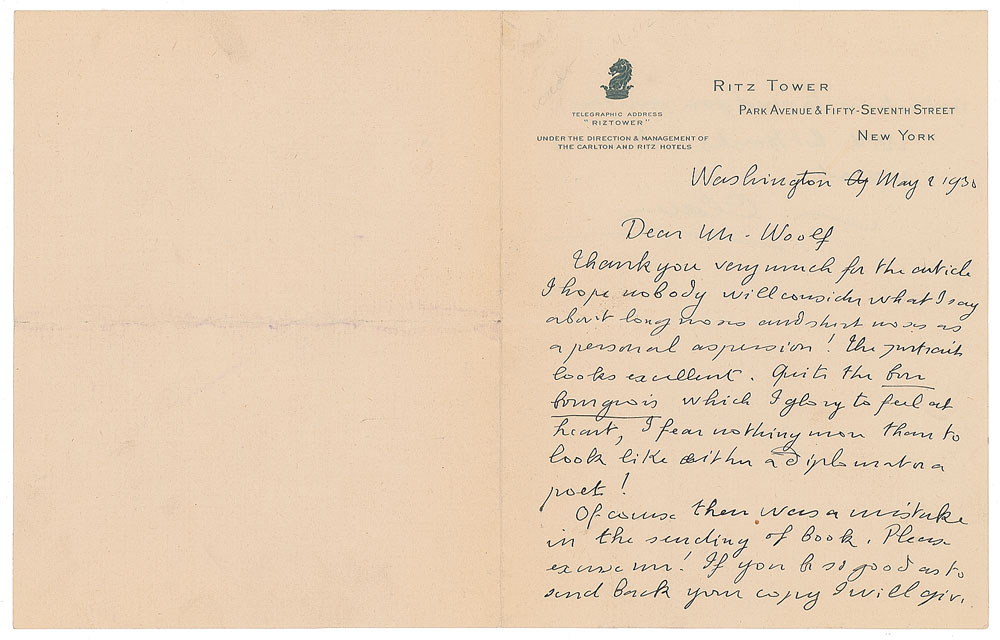 TELEGRAPHIC ADDRESS
"RIZTOWER"
UNDER THE DIRECTION & MANAGEMENT OF
THE CARLTON AND RITZ HOTELS
RITZ TOWER
PARK AVENUE & FIFTY-SEVENTH STREET
NEW YORK
Washington May 2 1930
Dear Mr - Woolf
Thank you very much for the article
I hope nobody will consider what I say
about long noses and short noses as
a personal aspersion! The portrait
looks excellent. Quite the bon
bourgeois which I glory to feel at
heart, I fear nothing more than to
look like either a diplomat or a
poet!
Of course there was a mistake
in the sending of book. Please
excuse me! If you be so good as to
send back your copy I will give